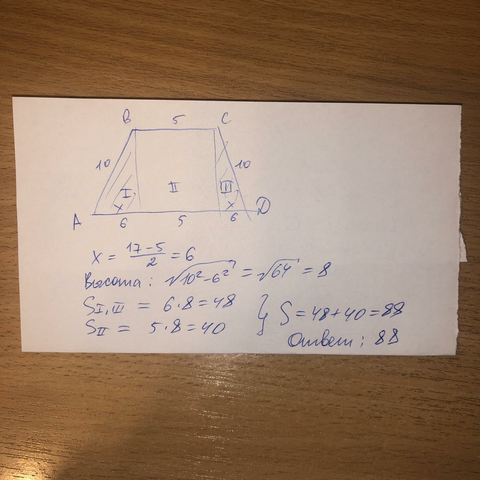 B 5 C
10 10
I II III
x x
A 6 5 6 D
x = \frac{17-5}{2} = 6
Высота: \sqrt{10²-6²} = \sqrt{64} = 8
S_{I, III} = 6·8=48
S_{II} = 5·8=40
} S=48+40=88
Ответ: 88